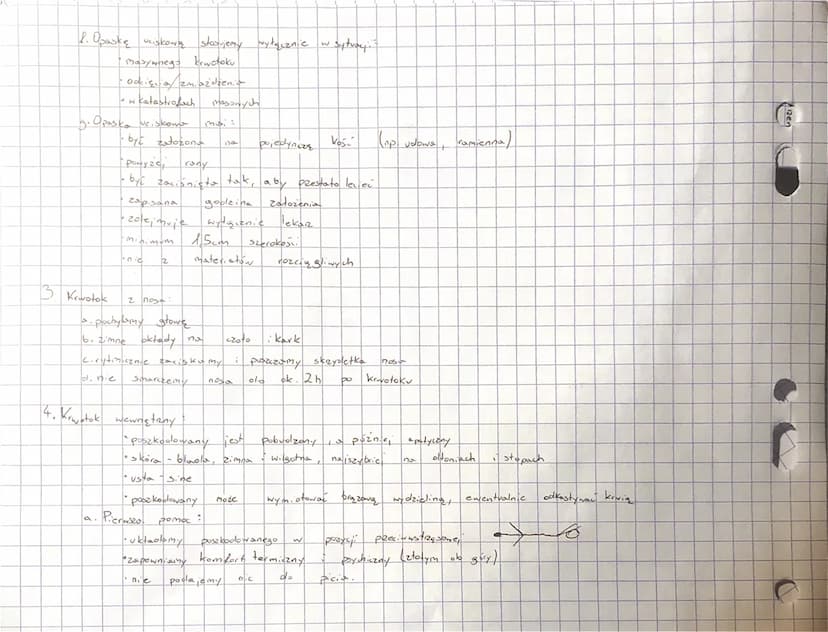 f. Opaskę uciskową stosujemy wyłącznie w sytuacji:
• masywnego krwotoku
• odcięcia/zmiażdżenia
• w katastrofach masowych
g. Opaska uciskowa musi:
• być założona na pojedynczą kość (np udowa, ramienna)
• powyżej rany
• być zaciśnięta tak, aby przestało lecieć
• zapisana godzina założenia
• zdejmuje wyłącznie lekarz
• minimum 1,5cm szerokości
• nie z materiałów rozciągliwych
3 Krwotok z nosa:
a. pochylamy głowę
b. zimne okłady na czoło i kark
c. rytmicznie zaciskamy i puszczamy skrzydełka nosa
d. nie smarkamy nosa do ok. 2h po krwotoku
4. Krwotok wewnętrzny:
• poszkodowany jest pobudzony, a później apatyczny
• skóra - blada, zimna i wilgotna, najszybciej na dłoniach i stopach
• usta - sine
• poszkodowany może wymiotować brązową wydzieliną, ewentualnie odkasływać krwią
a. Pierwsza pomoc:
• układamy poszkodowanego w pozycji przeciwwstrząsowej
• zapewniamy komfort termiczny i psychiczny (złotym do góry)
• nie podajemy nic do picia.